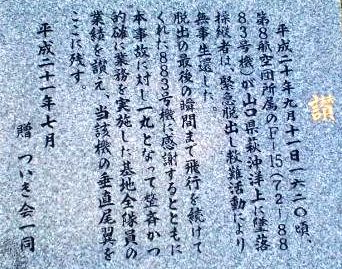 讃
平成二十年九月十一日一六二〇頃、
第8航空団所属のF-15(72-88
83号機)が山口県萩沖洋上に墜落
操縦者は、緊急脱出し救難活動により
無事生還した。
脱出の最後の瞬間まで飛行を続けて
くれた883号機に感謝するとともに
本事故に対し一丸となって整斉かつ
的確に業務を実施した基地全隊員の
業績を讃え、当該機の垂直尾翼を
ここに残す。
平成二十一年七月
贈 ついき会一同